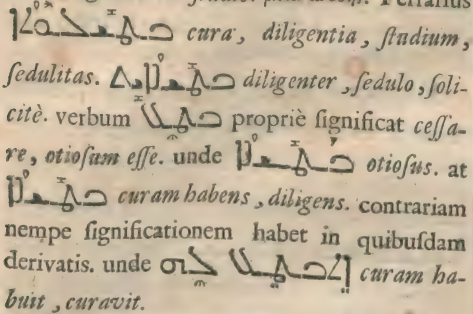 Ferrarius
ܒܛܝܠܘܬܐ cura, diligentia, ſtudium,
ſedulitas. ܒܛܝܠܐܝܬ diligenter, ſedulo, ſoli-
citè. verbum ܒܛܠ propriè ſignificat ceſſa-
re, otioſum eſſe. unde ܒܛܝܠܐ otioſus. at
ܒܛܝܠܐ curam habens, diligens. contrariam
nempe ſignificationem habet in quibuſdam
derivatis. unde ܐܬܒܛܠ ܠܗ curam ha-
buit, curavit.